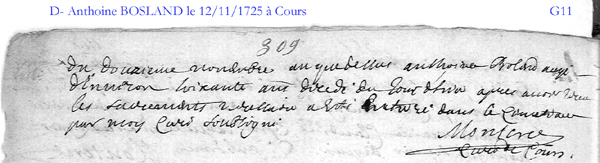 D- Anthoine BOSLAND le 12/11/1725 à Cours
G11
309
du douzieme novembre an que dessus anthoine Bolard aagé
d'environ soixante ans décédé du jour dhier apres avoir receu
les sacrements a esté enterré dans le
par moy curé soussigné
curé de Cours